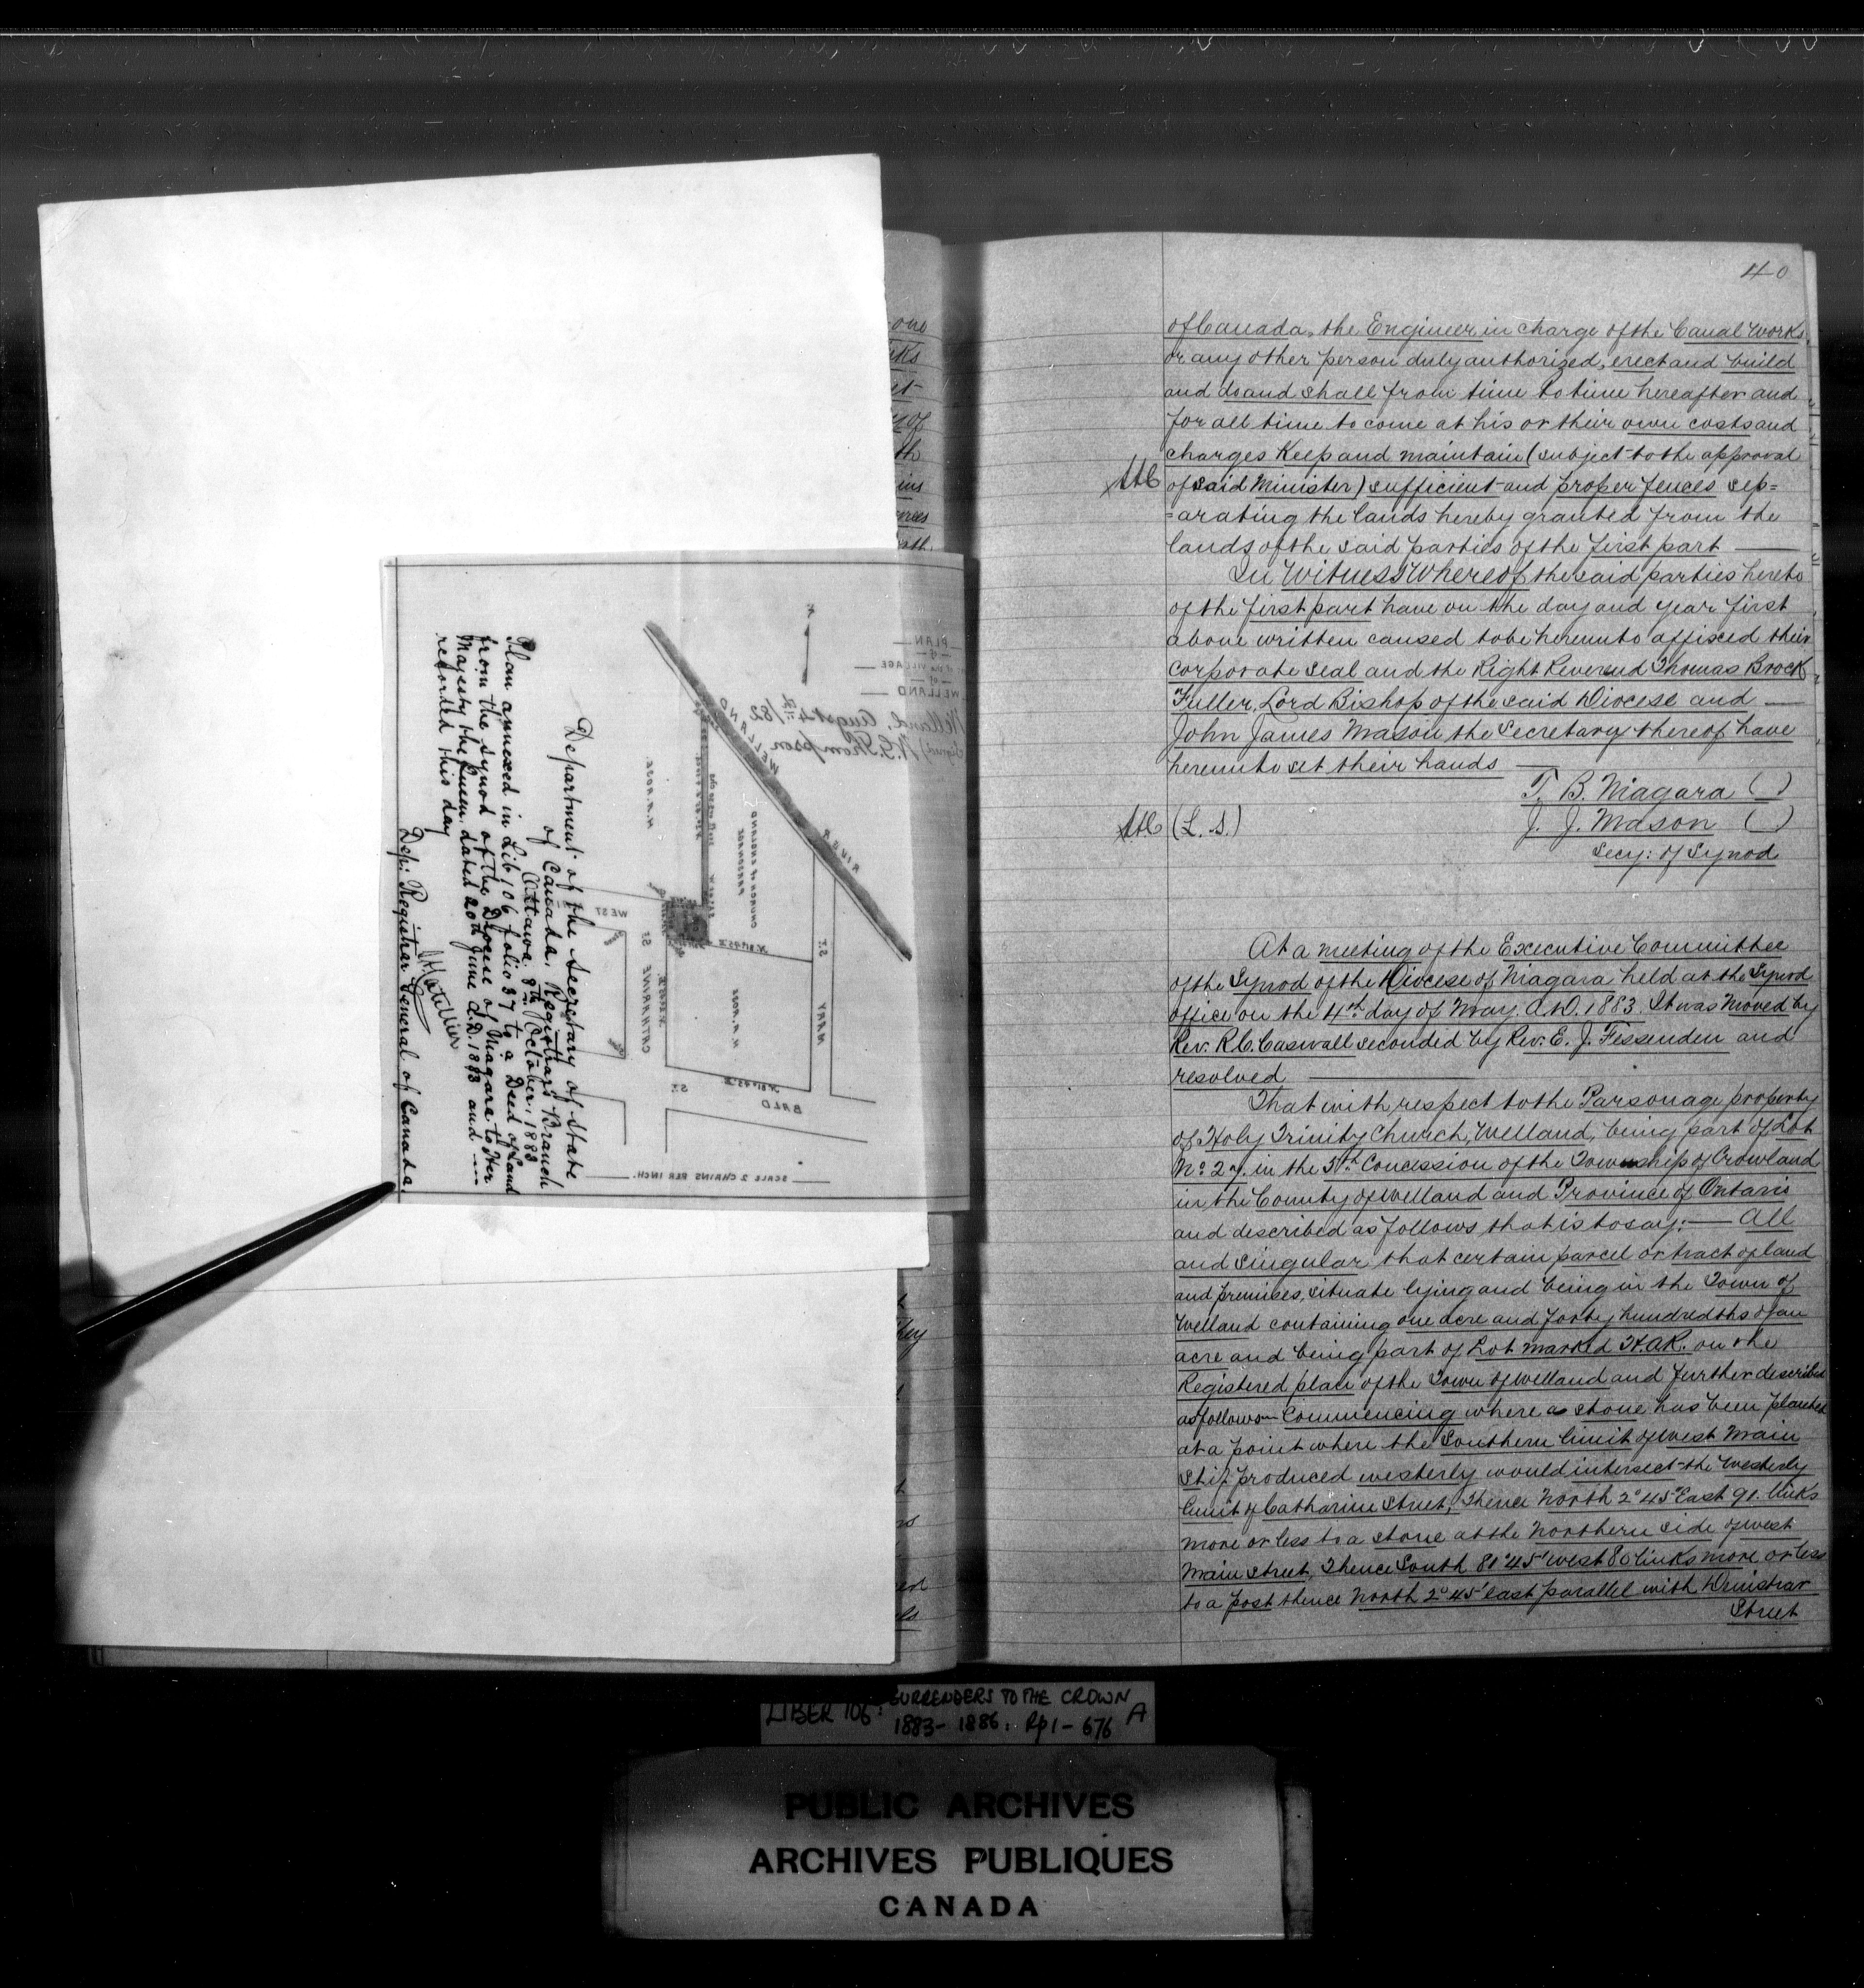 40
of Canada, the Engineer in charge of the Canal Works,
or any other person duly authorized, erect and build
and do and shall from time to time hereafter and
for all time to come at his or their own costs and
charges Keep and maintain (subject to the approval
of said Minister) sufficient and proper fences sep=
=arating the lands hereby granted from the
lands of the said parties of the first part
In Witness Whereof the said parties hereto
of the first part have on the day and year first
above written caused to be hereunto affixed their
corporate seal and the Right Reverend Thomas Brock
Fuller, Lord Bishop of the said Diocese and
John James Mason the Secretary thereof have
hereunto set their hands
T. B. Niagara ( )
(L. S.) J. J. Mason ( )
Secy: of Synod
At a meeting of the Executive Committee
of the Synod of the Diocese of Niagara held at the Synod
office on the 4th day of May. A.D. 1883. It was moved by
Rev. R.C. Caswall seconded by Rev. E. J. Fessenden and
resolved
That with respect to the Parsonage property
of Holy Trinity Church, Welland, being part of Lot
No 27. in the 5th Concession of the Township of Crowland
in the County of Welland and Province of Ontario
and described as follows that is to say:— All
and singular that certain parcel or tract of land
and premises, situate lying and being in the Town of
Welland containing one acre and forty hundredths of an
acre and being part of Lot marked H.A.R. on the
Registered plan of the Town of Welland and further described
as follows— Commencing where a stone has been planted
at a point where the Southern limit of West Main
St if produced westerly would intersect the Westerly
limit of Catharine Street, Thence North 2° 45' East 91. links
more or less to a stone at the Northern side of West
Main Street, Thence South 81° 45' West 80 links more or less
to a post thence North 2° 45' east parallel with Denistrar
Street
Department of the Secretary of State
of Canada. Registrar's Branch
Ottawa. 8th October. 1883
Plan annexed in Lib 106 folio 37 to a Deed of Land
from the Synod of the Diocese of Niagara to Her
Majesty the Queen, dated 20th June A.D. 1883 and
recorded this day
Dep: Registrar General of Canada.
PLAN
of
VILLAGE
of
WELLAND
Welland, August 4th /82
(Signed) W.G. Thompson
WELLAND
RIVER
H.A. ROSE
WEST
ST.
CATHARINE
ST.
MARY
H.A. ROSE
BALD
ST.
SCALE 2 CHAINS PER INCH.
LIBER 106: SURRENDERS TO THE CROWN A
1883-1886: Pp 1-676
PUBLIC ARCHIVES
ARCHIVES PUBLIQUES
CANADA